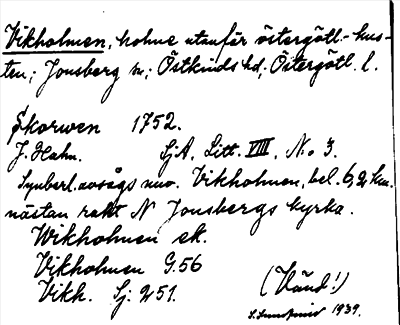 Vikholmen, holme utanför östergötl.-kus-
ten; Jonsberg sn; Östkinds hd; Östergötl. l.
Skorwen 1752.
J. Hahn. SjA, Litt. VIII, N:o 3.
Synberl. avsågs nuv. Vikholmen, bel. 6,2 km.
nästan rakt N Jonsbergs kyrka.
Wikholmen ek.
Vikholmen G.56
Vikh. Sj: 251.
(Vänd!)
1939.